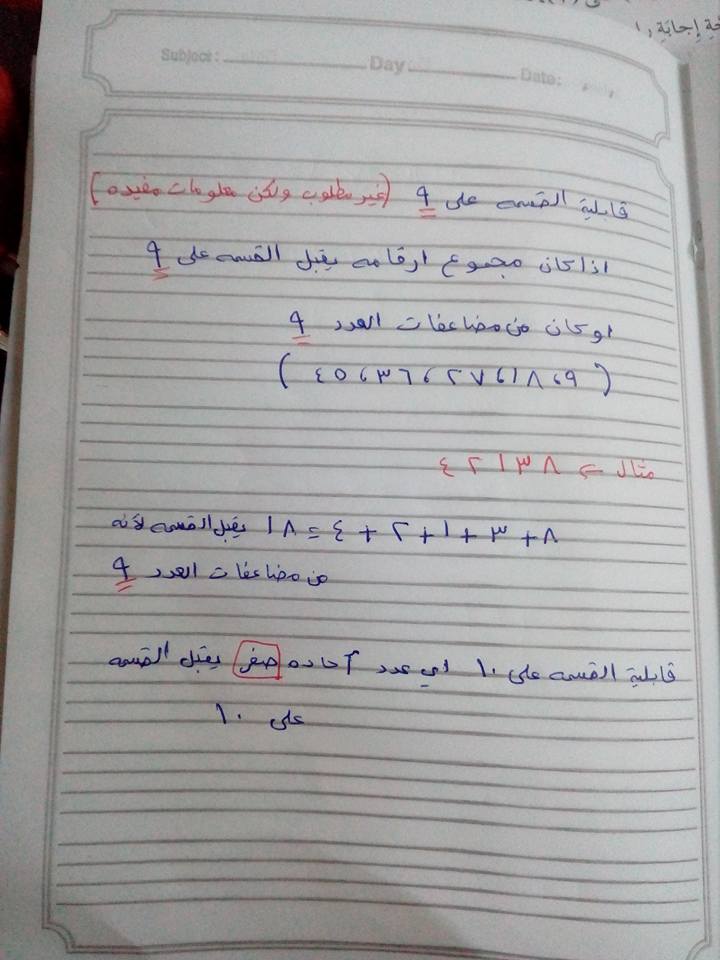 حة إجابة
Subject: Day Date:
قابلية القسمه على ٩ (غير مطلوب ولكن معلومات مفيده)
اذا كان مجموع ارقامه يقبل القسمه على ٩
او كان من مضاعفات العدد ٩
(٩، ١٨، ٢٧، ٣٦، ٤٥)
مثال ⇐ ٤٢١٣٨
٨ + ٣ + ١ + ٢ + ٤ = ١٨ يقبل القسمه لأنه
من مضاعفات العدد ٩
قابلية القسمه على ١٠ اي عدد آحاده صفر يقبل القسمه
على ١٠